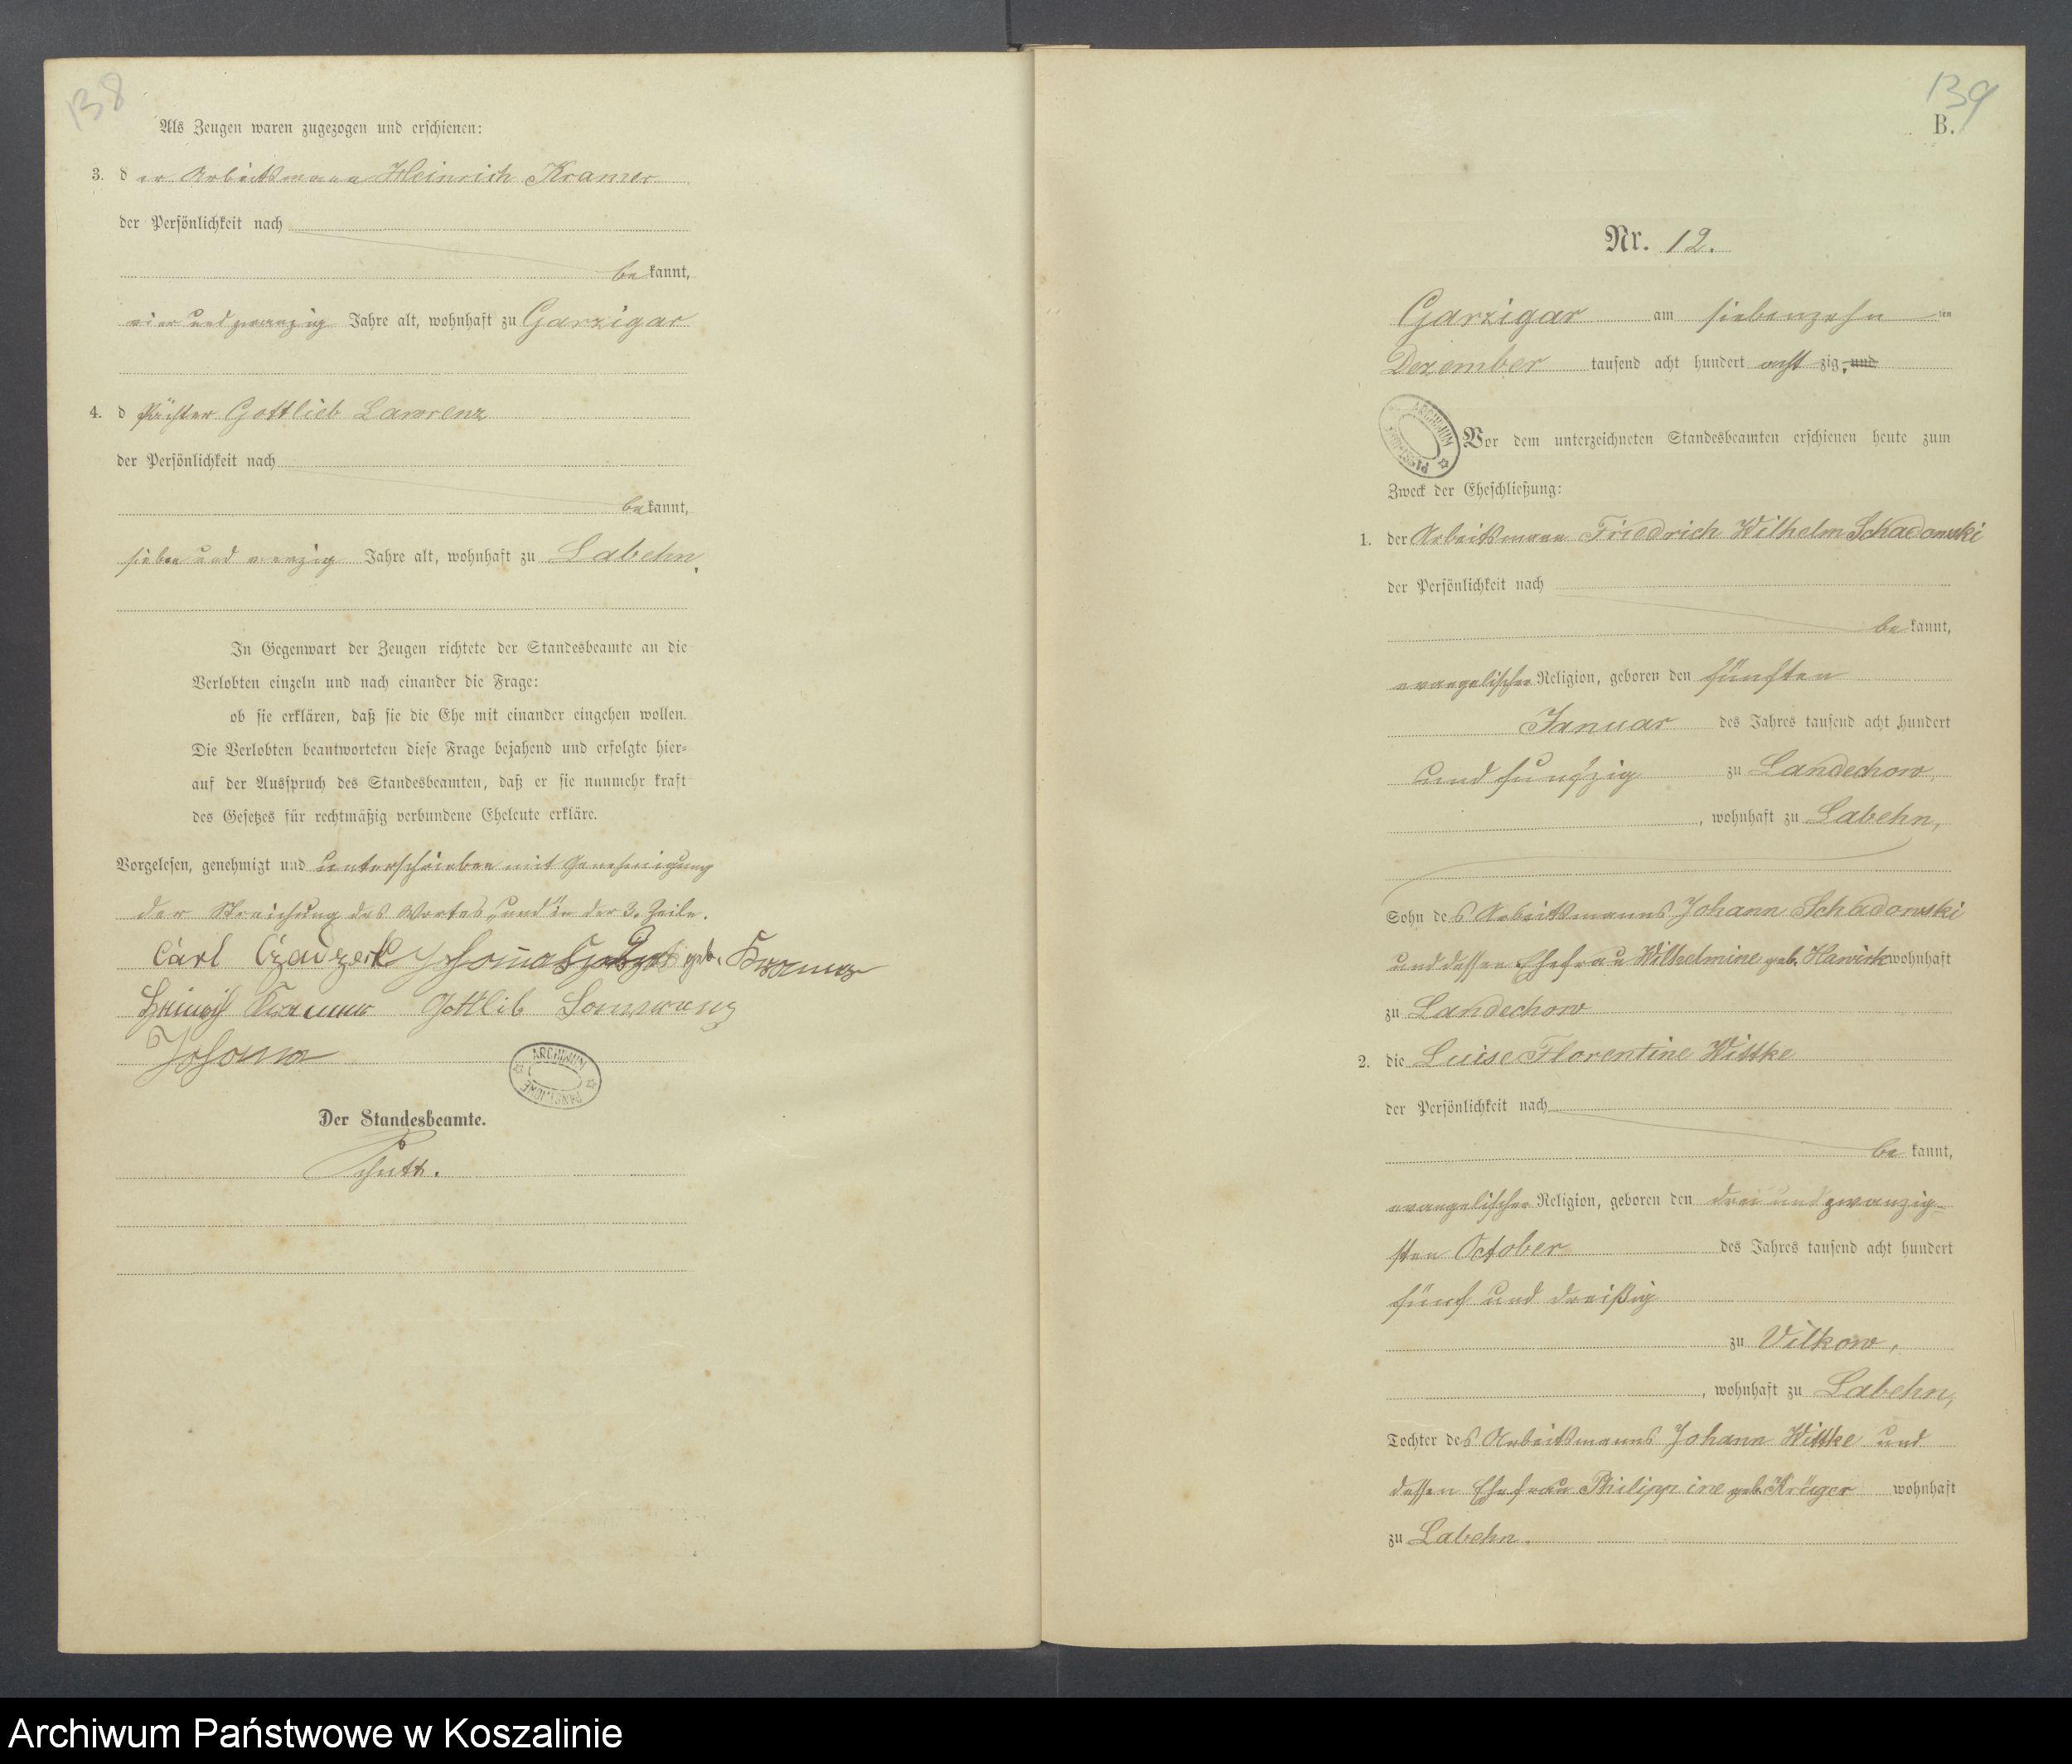 138
Als Zeugen waren zugezogen und erschienen:
3. der Arbeitsmann Heinrich Kramer
der Persönlichkeit nach
bekannt,
vier und zwanzig Jahre alt, wohnhaft zu Garzigar
4. d Pächter Gottlieb Lawrenz
der Persönlichkeit nach
bekannt,
sieben und vierzig Jahre alt, wohnhaft zu Labehn.
In Gegenwart der Zeugen richtete der Standesbeamte an die
Verlobten einzeln und nach einander die Frage:
ob sie erklären, daß sie die Ehe mit einander eingehen wollen.
Die Verlobten beantworteten diese Frage bejahend und erfolgte hier-
auf der Ausspruch des Standesbeamten, daß er sie nunmehr kraft
des Gesetzes für rechtmäßig verbundene Eheleute erkläre.
Vorgelesen, genehmigt und unterschrieben mit Genehmigung
der Streichung des Wortes „und" in der 3. Zeile.
Carl geb. Kramer
Heinrich Kramer Gottlib
ARCHIWUM PAŃSTWOWE
Der Standesbeamte.
139
B.
Nr. 12.
Garzigar am siebenzehn ten
Dezember tausend acht hundert acht zig, und
ARCHIWUM PAŃSTWOWE
Vor dem unterzeichneten Standesbeamten erschienen heute zum
Zweck der Eheschließung:
1. der Arbeitsmann Friedrich Wilhelm Schadowski
der Persönlichkeit nach
bekannt,
evangelischer Religion, geboren den fünften
Januar des Jahres tausend acht hundert
und funfzig zu Landechow,
, wohnhaft zu Labehn,
Sohn des Arbeitsmanns Johann Schadowski
und dessen Ehefrau Wilhelmine geb. Hawirk wohnhaft
zu Landechow
2. die Luise Florentine Wittke
der Persönlichkeit nach
bekannt,
evangelischer Religion, geboren den drei und zwanzig-
sten October des Jahres tausend acht hundert
fünf und dreißig
zu Vilkow,
, wohnhaft zu Labehn,
Tochter des Arbeitsmanns Johann Wittke und
dessen Ehefrau Philippine geb. Krüger wohnhaft
zu Labehn.
Archiwum Państwowe w Koszalinie